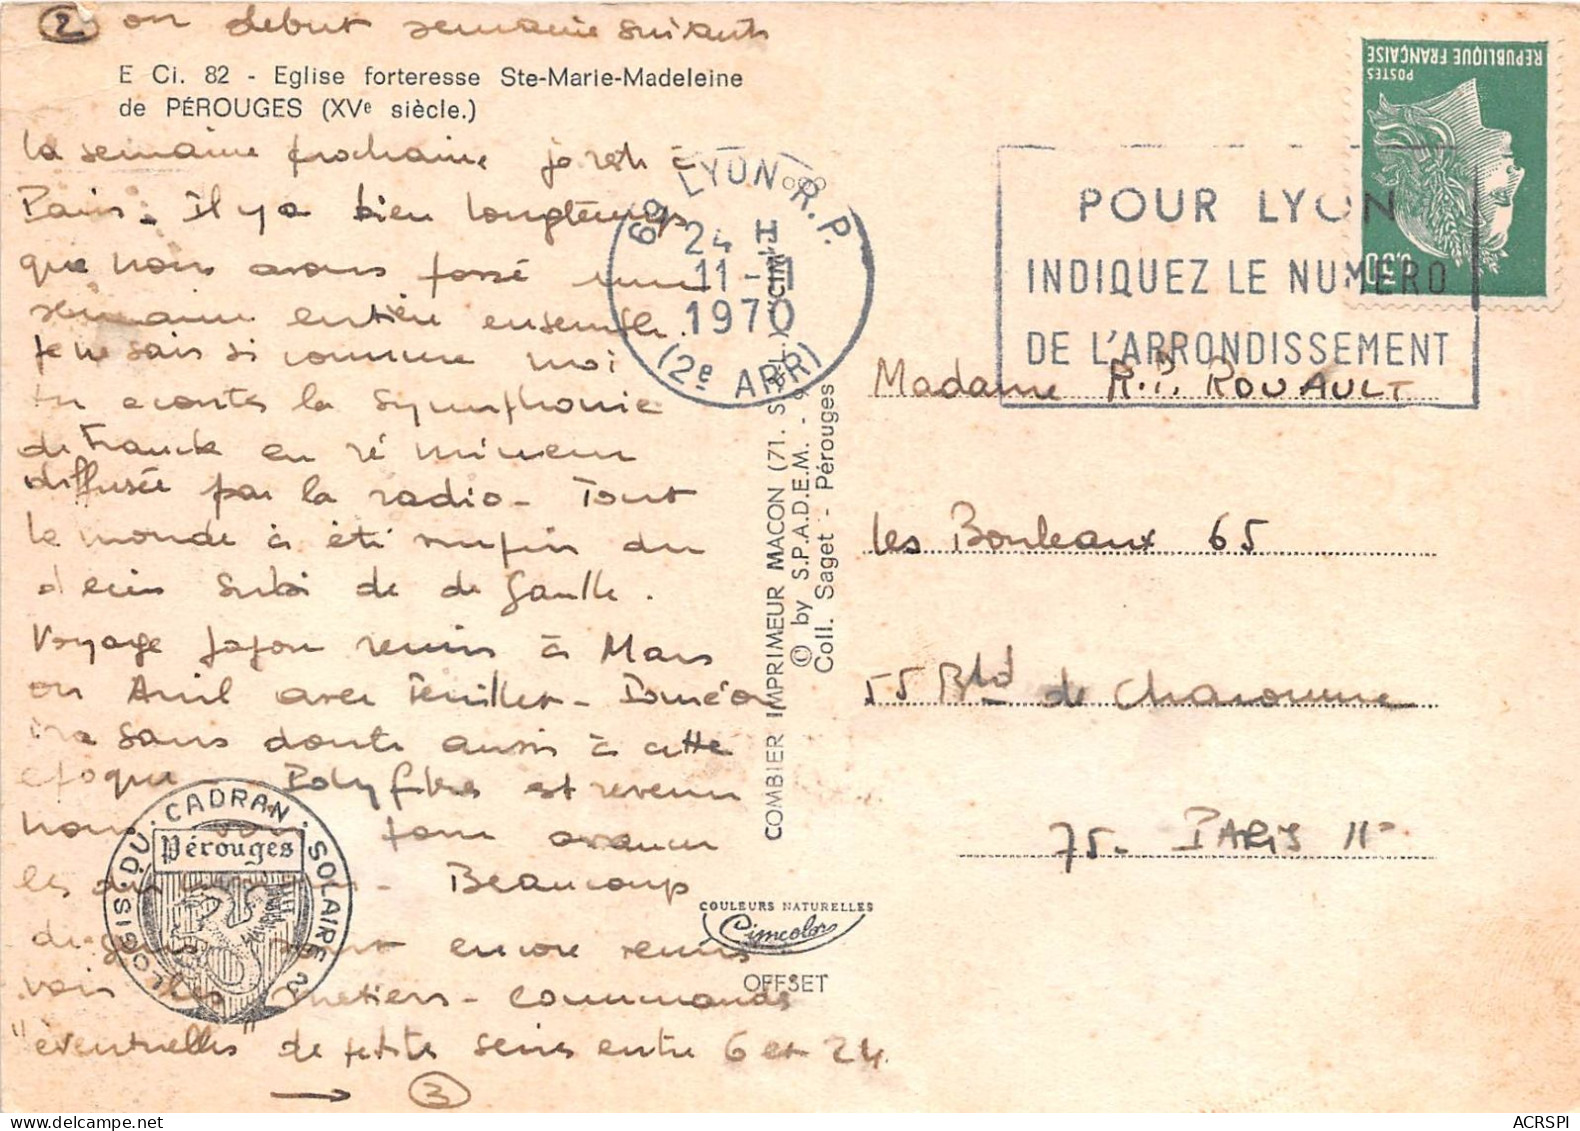 2 on debut semaine suivante
E Ci. 82 - Eglise forteresse Ste-Marie-Madeleine
de PÉROUGES (XVe siècle.)
la semaine prochaine je reste à
Paris. Il y a bien longtemps
que nous avons passé une
semaine entière ensemble.
Je ne sais si comme moi
tu écoutes la symphonie
de Franck en ré mineur
diffusée par la radio - Tout
le monde à été surpris du
décès subi de de Gaulle.
Voyage Japon remis à Mars
ou Avril avec Feuillet -
ira sans doute aussi à cette
époque Polyfibres est revenu
nous voir pour avancer
les - Beaucoup
de gens sont encore venus
voir les métiers - commandes
"éventuelles" de petite série entre 6 et 24
→ 3
LOGIS DU CADRAN SOLAIRE
Pérouges
COMBIER IMPRIMEUR MACON (71. S.-&-L.) "CIM"
© by S.P.A.D.E.M. -
Coll. Saget - Pérouges
COULEURS NATURELLES
Cimcolor
OFFSET
69 LYON R.P.
24 H
11 - XI
1970
(2e ARR)
POUR LYON
INDIQUEZ LE NUMERO
DE L'ARRONDISSEMENT
RÉPUBLIQUE FRANÇAISE
POSTES
0,30
Madame R.P. ROUAULT
les Bouleaux 65
55 Bld de Charonne
75. PARIS 11°
ACRSPI